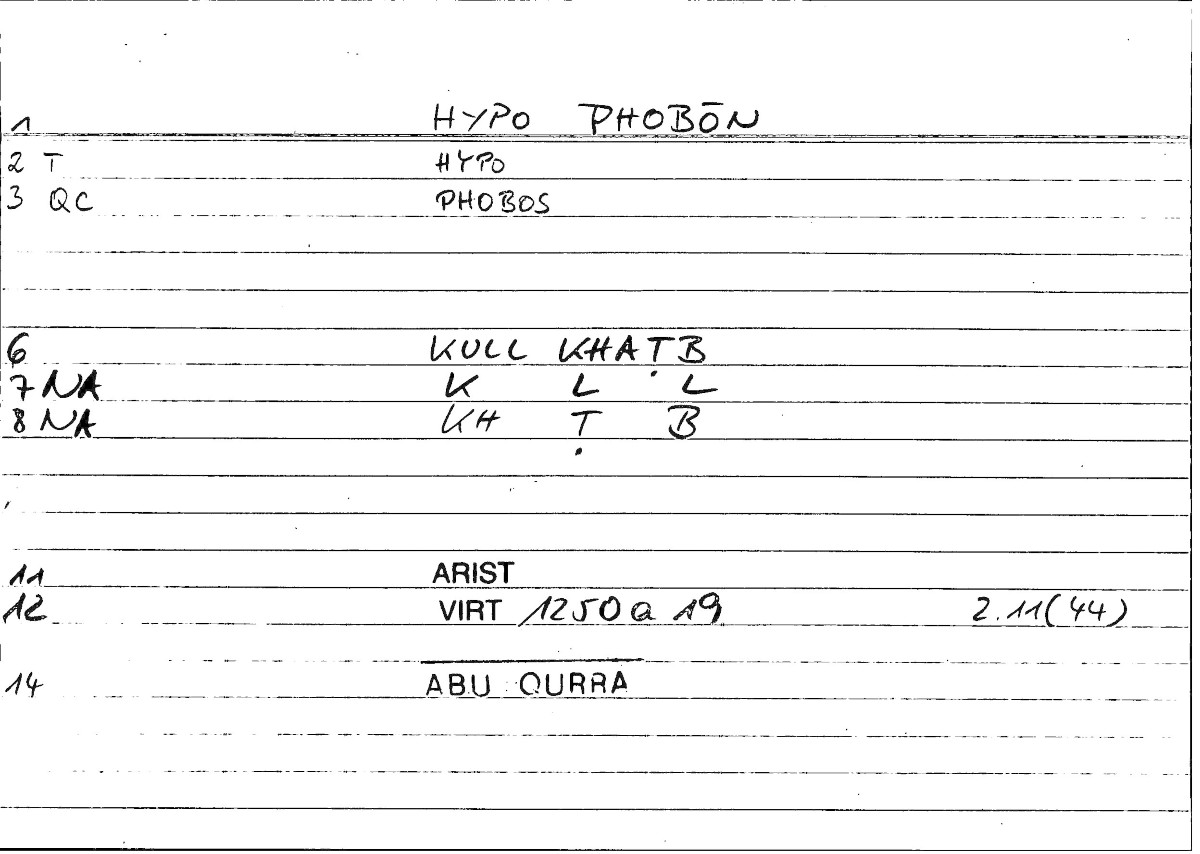 1 HYPO PHOBŌN
2 T HYPO
3 QC PHOBOS
6 KULL KHAṬB
7 NA K L L
8 NA KH Ṭ B
11 ARIST
12 VIRT 1250 a 19 2.11(44)
14 ABU QURRA